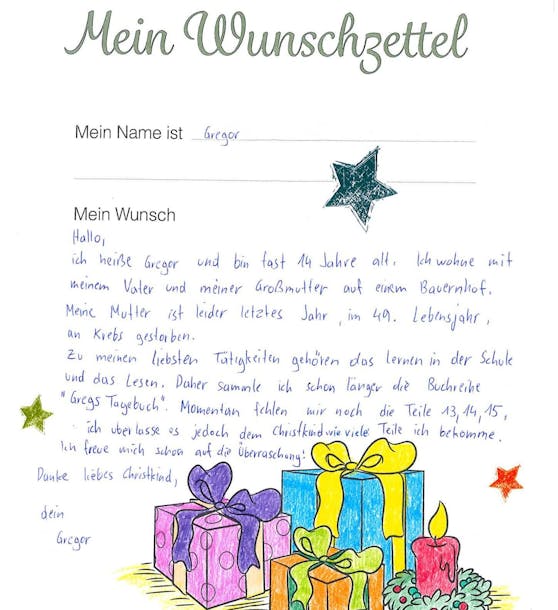 Mein Wunschzettel
Mein Name ist Gregor
Mein Wunsch
Hallo,
ich heiße Gregor und bin fast 14 Jahre alt. Ich wohne mit
meinem Vater und meiner Großmutter auf einem Bauernhof.
Meine Mutter ist leider letztes Jahr, im 49. Lebensjahr,
an Krebs gestorben.
Zu meinen liebsten Tätigkeiten gehören das lernen in der Schule
und das Lesen. Daher sammle ich schon länger die Buchreihe
"Gregs Tagebuch". Momentan fehlen mir noch die Teile 13, 14, 15,
ich überlasse es jedoch dem Christkind wie viele Teile ich bekomme.
Ich freue mich schon auf die Überraschung!
Danke liebes Christkind,
dein
Gregor